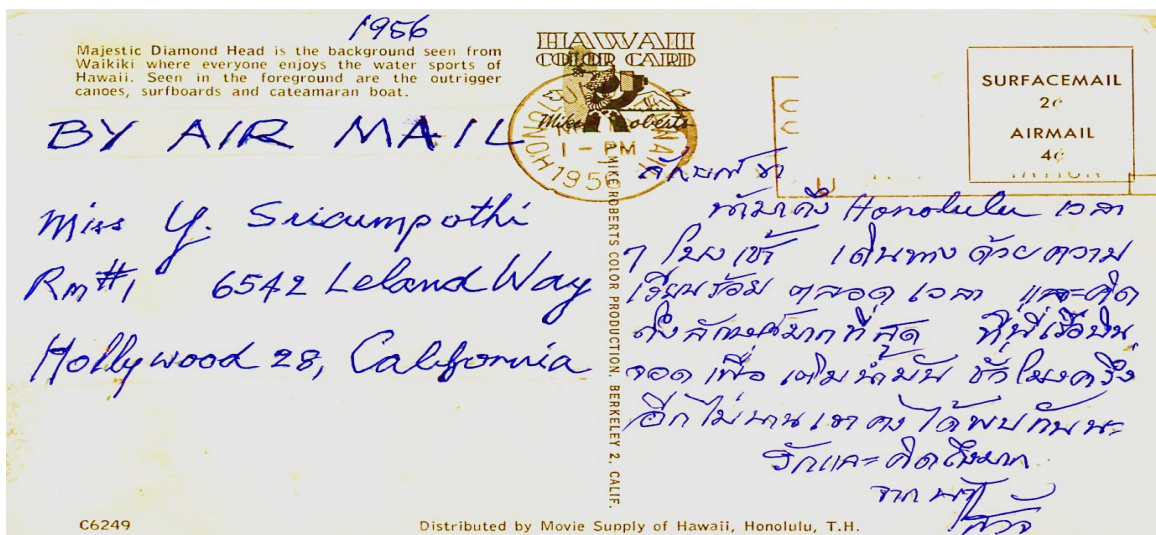 1956
Majestic Diamond Head is the background seen from
Waikiki where everyone enjoys the water sports of
Hawaii. Seen in the foreground are the outrigger
canoes, surfboards and cateamaran boat.
HAWAII
COLOR CARD
Mike Roberts
HONOLULU HAWAII
1 - PM
1956
SURFACEMAIL
2¢
AIRMAIL
4¢
BY AIR MAIL
Miss Y. Sricumpothi
Rm #1 6542 Leland Way
Hollywood 28, California
© MIKE ROBERTS COLOR PRODUCTION, BERKELEY 2, CALIF.
Honolulu เวลา
๗ โมงเช้า เดินทางด้วยความ
เรียบร้อยตลอดเวลา และคิด
ถึงลักษณ์มากที่สุด ที่นี่เรือบิน
จอดเพื่อเติมน้ำมัน ชั่วโมงครึ่ง
อีกไม่นานเราคงได้พบกันนะ
รักและคิดถึงมาก
จาก
C6249
Distributed by Movie Supply of Hawaii, Honolulu, T.H.